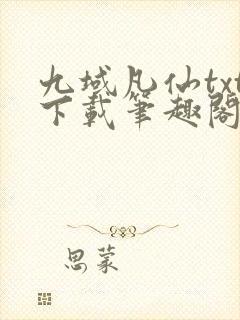 九域凡仙txt
下載筆趣閣
思蒙